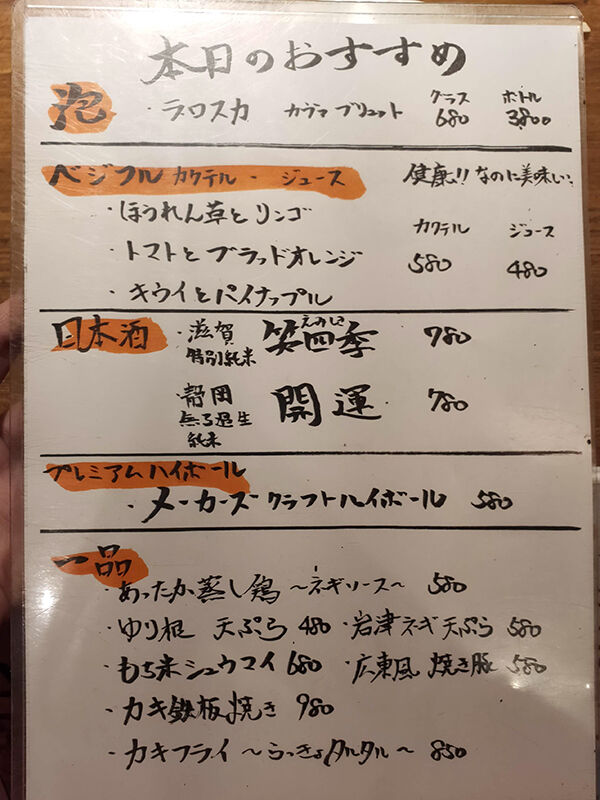 本日のおすすめ
泡 ・ラロスカ カヴァ ブリュット グラス 680 ボトル 3800
ベジフル カクテル・ジュース 健康!! なのに美味しい:
・ほうれん草とリンゴ
・トマトとブラッドオレンジ カクテル 580 ジュース 480
・キウイとパイナップル
日本酒 ・滋賀 特別純米 笑四季 えみしき 780
・静岡 無ろ過生 純米 開運 780
プレミアムハイボール
・メーカーズクラフトハイボール 580
一品
・あったか蒸し鶏 〜ネギソース〜 580
・ゆり根 天ぷら 480 ・岩津ネギ天ぷら 580
・もち米シュウマイ 680 ・広東風 焼き豚 580
・カキ鉄板焼き 980
・カキフライ 〜らっきょタルタル〜 850